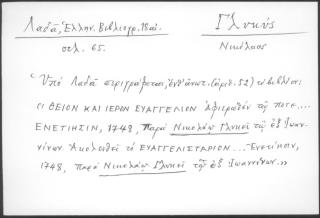 Λαδᾶ, Ἑλλην. Βιβλιογρ. 18 αἰ.
σελ. 65.
Γλυκύς
Νικόλαος
Ὑπό Λαδᾶ περιγράφεται, ἐνθ' ἀνωτ. (ἀριθ. 52) τό βιβλίον:
ΘΕΙΟΝ ΚΑΙ ΙΕΡΟΝ ΕΥΑΓΓΕΛΙΟΝ Ἀφιερωθέν τῷ ποτε...
ΕΝΕΤΙΗΣΙΝ, 1748, Παρά Νικολάῳ Γλυκεῖ τῷ ἐξ Ἰωαν-
νίνων. Ἀκολουθεῖ τό ΕΥΑΓΓΕΛΙΣΤΑΡΙΟΝ... Ἐνετίησιν,
1748, παρά Νικολάῳ Γλυκεῖ τῷ ἐξ Ἰωαννίνων.»